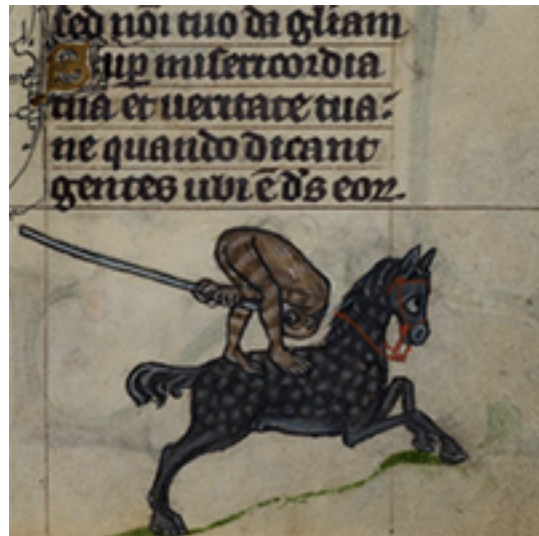 sed nōi tuo da gliam
Sup misericordia
tua et ueritate tua:
ne quando dicant
gentes ubi ē d's eor.